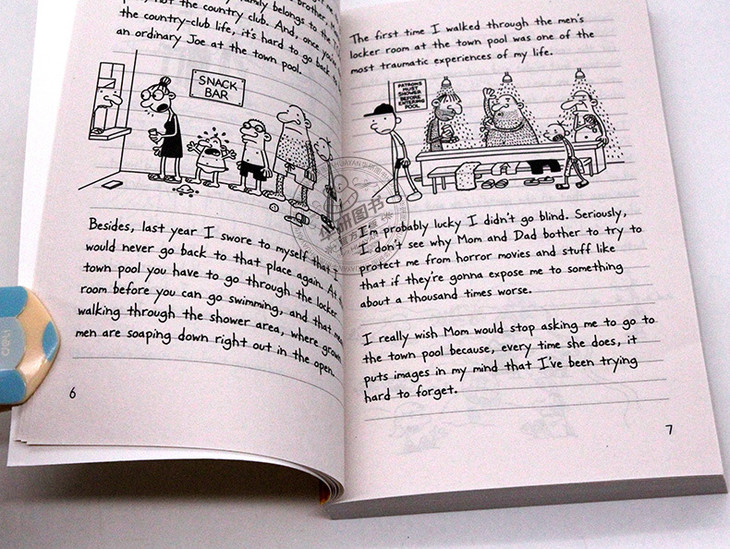 brother
family belongs to the
not the country club. And, once
the country-club life, it's hard to go back
an ordinary Joe at the town pool.
SNACK
BAR
Besides, last year I swore to myself that I
would never go back to that place again. At
town pool you have to go through the locker
room before you can go swimming, and that
walking through the shower area, where grown
men are soaping down right out in the open.
6
The first time I walked through the men's
locker room at the town pool was one of the
most traumatic experiences of my life.
PATRONS
MUST
SHOWER
BEFORE
ENTERING
POOL
I'm probably lucky I didn't go blind. Seriously,
I don't see why Mom and Dad bother to try to
protect me from horror movies and stuff like
that if they're gonna expose me to something
about a thousand times worse.
I really wish Mom would stop asking me to go to
the town pool because, every time she does, it
puts images in my mind that I've been trying
hard to forget.
7
deli